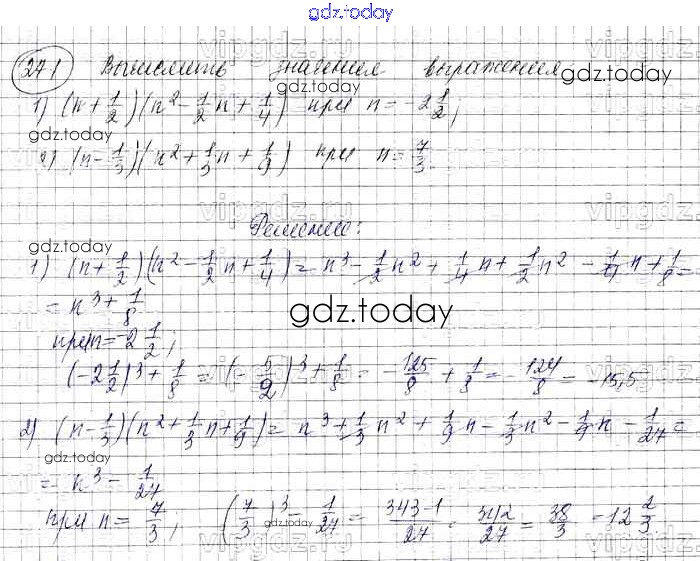 gdz.today
271 Вычислить значения выражения
1) (n + 1/2)(n² - 1/2 n + 1/4) при n = -2 1/2;
gdz.today
2) (n - 1/3)(n² + 1/3 n + 1/9) при n = 7/3.
Решение:
gdz.today
1) (n + 1/2)(n² - 1/2 n + 1/4) = n³ - 1/2 n² + 1/4 n + 1/2 n² - 1/4 n + 1/8 =
= n³ + 1/8
gdz.today
при n = -2 1/2;
(-2 1/2)³ + 1/8 = (-5/2)³ + 1/8 = -125/8 + 1/8 = -124/8 = -15,5
2) (n - 1/3)(n² + 1/3 n + 1/9) = n³ + 1/3 n² + 1/9 n - 1/3 n² - 1/9 n - 1/27 =
gdz.today
= n³ - 1/27
при n = 7/3; (7/3)³ - 1/27 = 343-1/27 = 342/27 = 38/3 = 12 2/3
gdz.today
vipgdz.ru